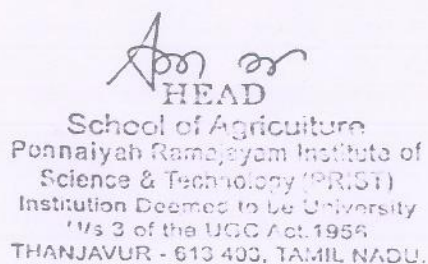 HEAD
School of Agriculture
Ponnaiyah Ramajayam Institute of
Science & Technology (PRIST)
Institution Deemed to be University
U/s 3 of the UGC Act.1956
THANJAVUR - 613 403, TAMIL NADU.